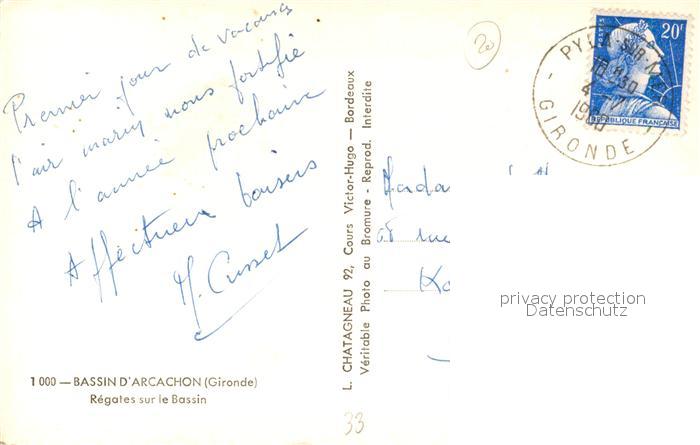 Premier jour de vacances
l'air marin nous fortifie
A l'année prochaine
Affectueux baisers
M. Cusset
1 000 — BASSIN D'ARCACHON (Gironde)
Régates sur le Bassin
L. CHATAGNEAU 92, Cours Victor-Hugo — Bordeaux
Véritable Photo au Bromure - Reprod. Interdite
20
33
POSTES
20F
REPUBLIQUE FRANÇAISE
PYLA-SUR-MER
GIRONDE
Mada
68 rue
privacy protection
Datenschutz